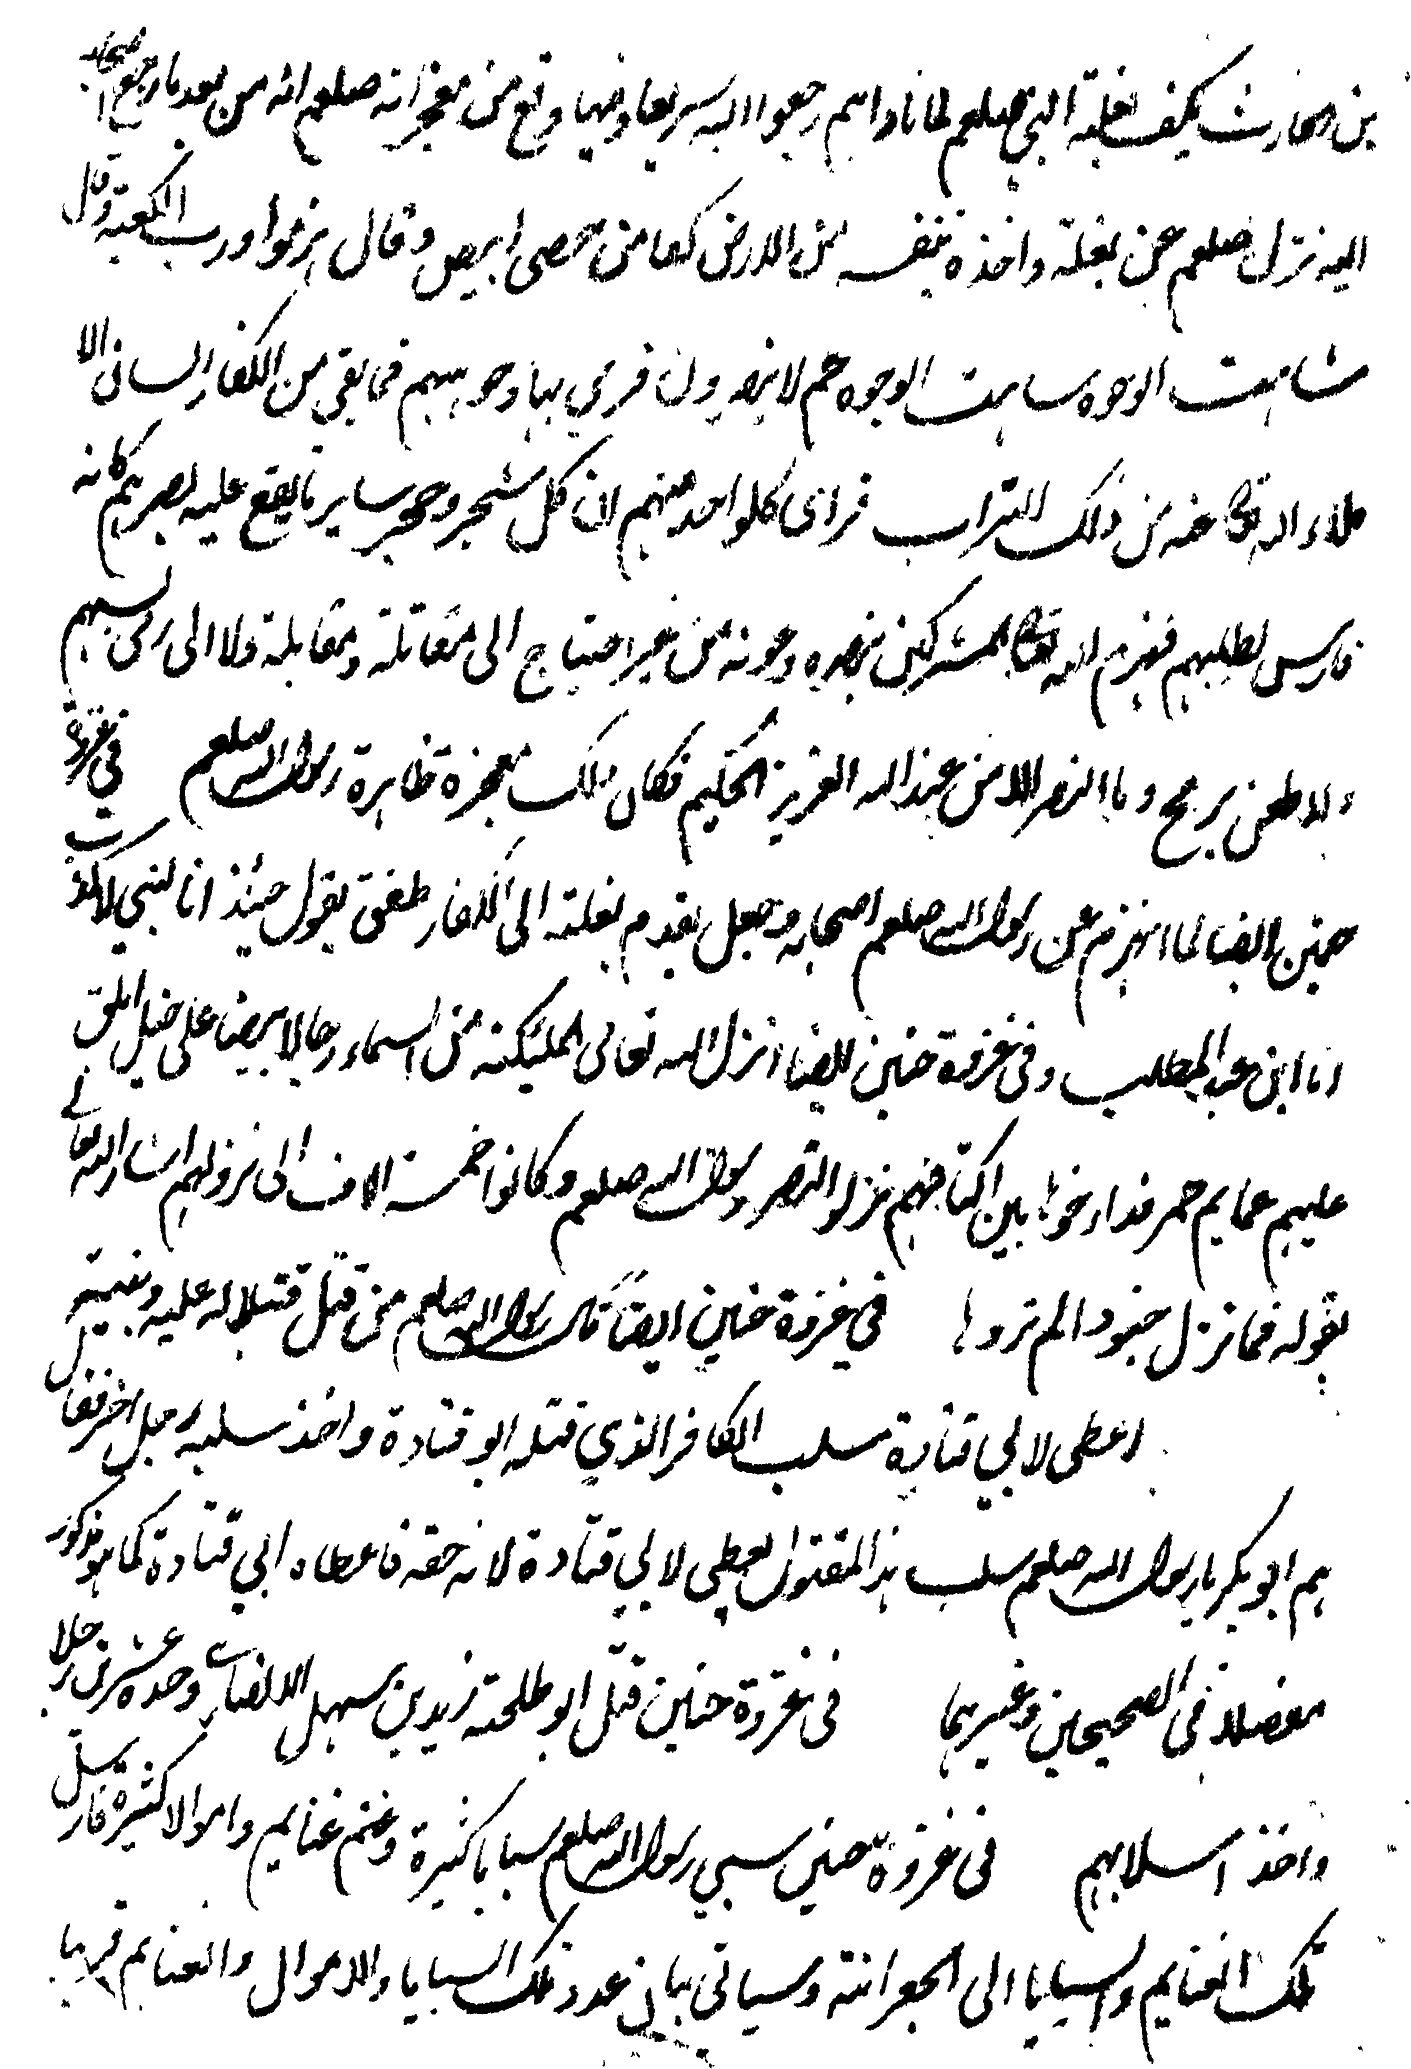 بن الحارث يكف بغلة النبي صلعم لما ناداهم رجعوا اليه سريعا وفيها وقع من معجزاته صلعم انه من بعد ما رجع اصحابه
اليه نزل صلعم عن بغلة واخذه بنفسه من الارض كفا من حصى ابيض وقال هزموا ورب الكعبة وقال
شاهت الوجوه شاهت الوجوه حم لا ينصرون فرمي بها وجوههم فما بقي من الكفار انسان الا
ملاء الله تعا عينه من ذلك التراب فراى كلواحد منهم ان كل شجر وحجر ساير ما يقع عليه بصرهم كانه
فارس يطلبهم فهزم الله تعا المشركين بنصره وعونه من غير احتياج الى مقاتلة ومقابلة ولا الى رمي بسهم
ولا طعن برمح وما النصر الا من عند الله العزيز الحكيم فكان ذلك معجزة ظاهرة رسول الله صلعم في غزوة
حنين ايضا لما انهزم عن رسول الله صلعم اصحابه وجعل يقدم بغلته الى الكفار طفق يقول حينئذ انا النبي لا كذب
انا ابن عبد المطلب وفي غزوة حنين ايضا انزل الله تعالى الملئكة من السماء رجالا بيضا على خيل ابلق
عليهم عمايم حمر قد ارخوها بين اكتافهم نزلوا لنصر رسول الله صلعم وكانوا خمسة الاف الى نزولهم اشار الله تعالى
بقوله فانزل جنودا لم تروها في غزوة حنين ايضا قال رسول الله صلعم من قتل قتيلا له عليه وبينة
اعطى لابي قتادة سلب الكافر الذي قتله ابو قتادة واخذ سلبه رجل اخر فقال
لهم ابو بكر يا رسول الله صلعم سلب هذا المقتول يعطي لابي قتادة لانه حقه فاعطاه ابي قتادة كما هو مذكور
مفصلا في الصحيحين وغيرهما في غزوة حنين قتل ابو طلحة زيد بن سهل الانصاري وحده عشرين رجلا
واخذ اسلابهم في غزوة حنين سبي رسول الله صلعم سبايا كثيرة وغنم غنايم واموالا كثيرة فارسل
تلك الغنايم والسبايا الى الجعرانة وسياتي بيان عدد تلك السبايا والاموال والغنايم قريبا